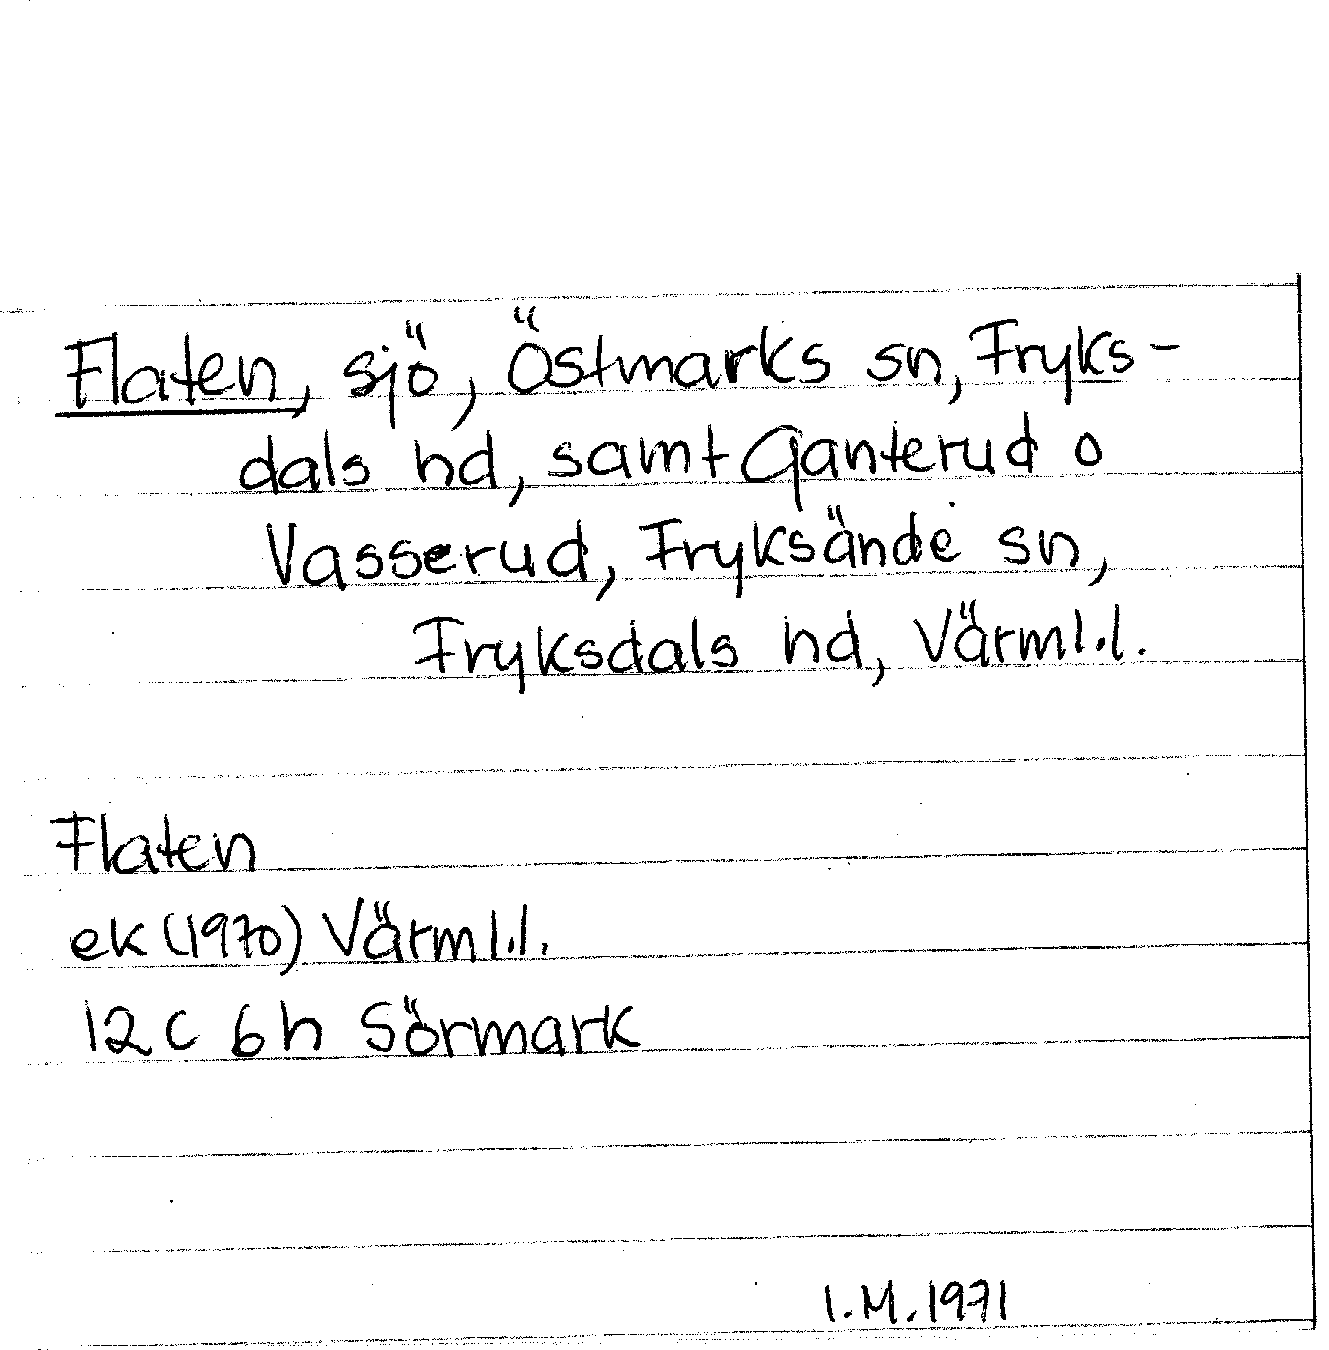 Flaten, sjö, Östmarks sn, Fryks-
dals hd, samt Ganterud o
Vasserud, Fryksände sn,
Fryksdals hd, Värml.l.
Flaten
ek (1970) Värml.l.
12 C 6h Sörmark
I.M. 1971